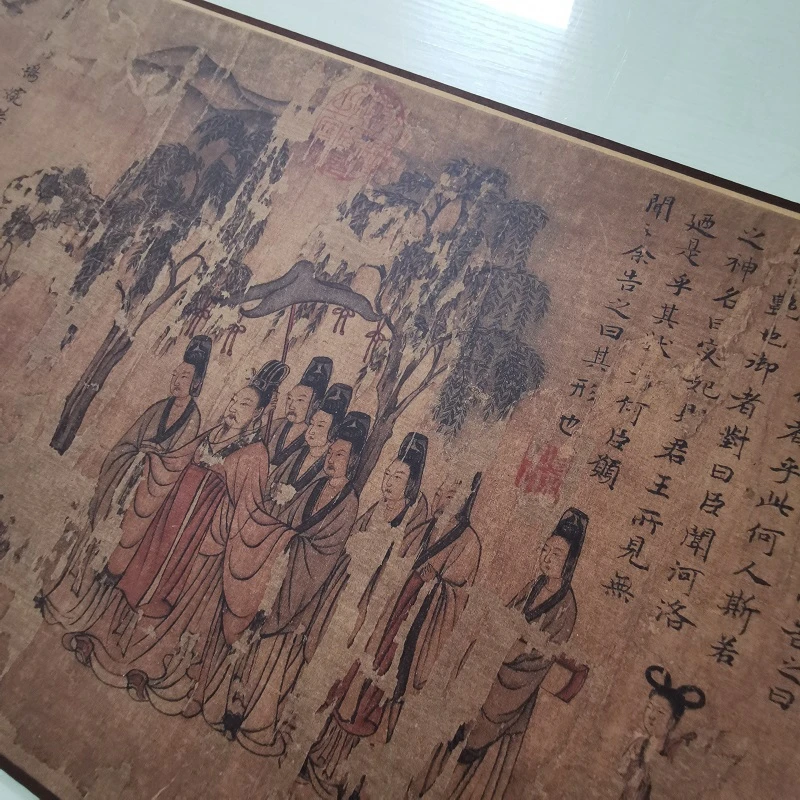 告之曰
者乎此何人斯若
艷也御者對曰臣聞河洛
之神名曰宓妃則君王所見無
廼是乎其狀若何臣願
聞之余告之曰其形也